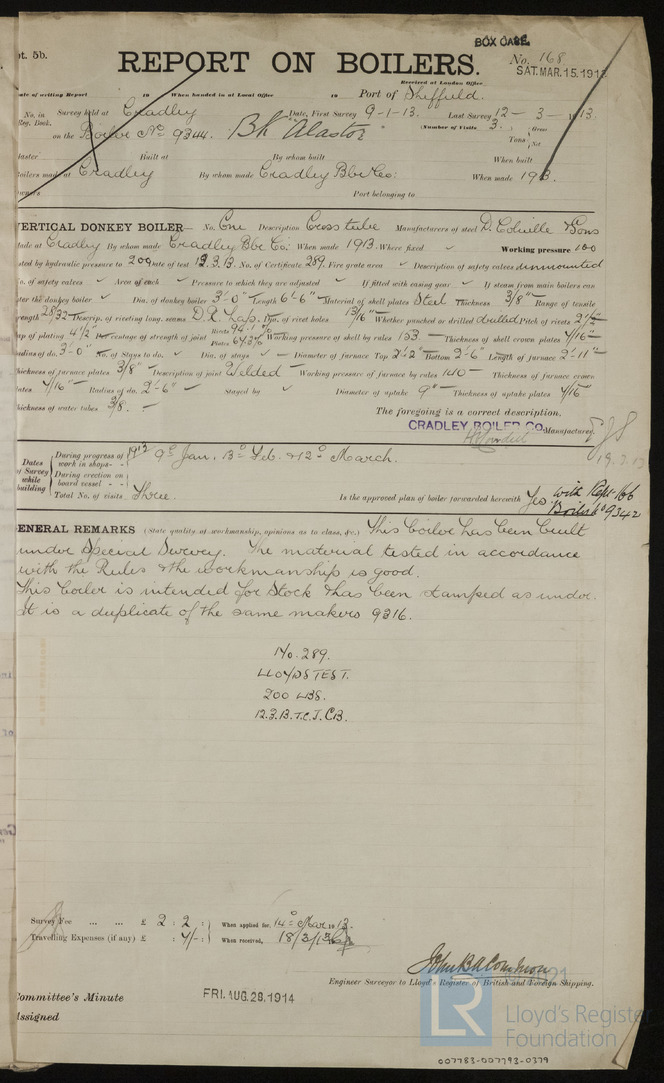 pt. 5b.
BOX CASE
REPORT ON BOILERS.
No. 168
SAT. MAR. 15. 191
Received at London Office
Date of writing Report 19 When handed in at Local Office 19 Port of Sheffield.
No. in Survey held at Cradley Date, First Survey 9-1-13. Last Survey 12-3-1913.
Reg. Book. (Number of Visits 3.
on the Boiler No 9344. Bk "Alastor" Tons Gross Net
Master Built at By whom built When built
Boilers made at Cradley By whom made Cradley Blr Co: When made 1913.
Owners Port belonging to
VERTICAL DONKEY BOILER— No. One Description Cross tube Manufacturers of steel D. Colville & Sons
Made at Cradley By whom made Cradley Blr Co: When made 1913. Where fixed ✓ Working pressure 100
tested by hydraulic pressure to 200 Date of test 12.3.13. No. of Certificate 289. Fire grate area ✓ Description of safety valves unmounted
No. of safety valves ✓ Area of each ✓ Pressure to which they are adjusted ✓ If fitted with easing gear ✓ If steam from main boilers can
enter the donkey boiler ✓ Dia. of donkey boiler 3'-0" Length 6'-6" Material of shell plates Steel Thickness 3/8" Range of tensile
strength 28/32 Descrip. of riveting long. seams D.R. Lap. Dia. of rivet holes 13/16" Whether punched or drilled drilled Pitch of rivets 2 1/2"
Lap of plating 4 1/2" Per centage of strength of joint Rivets 94.1 Plates 64.3% Working pressure of shell by rules 133 Thickness of shell crown plates 7/16"
Radius of do. 3'-0" No. of Stays to do. ✓ Dia. of stays ✓ Diameter of furnace Top 2'-2" Bottom 2'-6" Length of furnace 2'-11"
Thickness of furnace plates 3/8" Description of joint Welded Working pressure of furnace by rules 140 Thickness of furnace crown
plates 7/16" Radius of do. 2'-6" Stayed by ✓ Diameter of uptake 9" Thickness of uptake plates 7/16"
Thickness of water tubes 3/8.
The foregoing is a correct description.
CRADLEY BOILER CO. Manufacturer.
19.3.13
Dates of Survey while building
During progress of work in shops - - 1913 9th Jan, 13th Feb. & 12th March.
During erection on board vessel - -
Total No. of visits Three. Is the approved plan of boiler forwarded herewith Yes with Rept 166
Boiler No 9342
GENERAL REMARKS (State quality of workmanship, opinions as to class, &c.) This boiler has been built
under Special Survey. The material tested in accordance
with the Rules & the workmanship is good.
This boiler is intended for Stock & has been stamped as under.
It is a duplicate of the same makers 9316.
No. 289.
LLOYDS TEST.
200 LBS.
12.3.13. T.C. J.C.B.
Survey Fee ... ... £ 2 : 2 : When applied for, 14th Mar 1913.
Travelling Expenses (if any) £ : 4/- : When received, 18/3/13
John B A Common
Engineer Surveyor to Lloyd's Register of British and Foreign Shipping.
Committee's Minute FRI. AUG. 28. 1914
Assigned
LR
Lloyd's Register
Foundation
007783-007793-0379